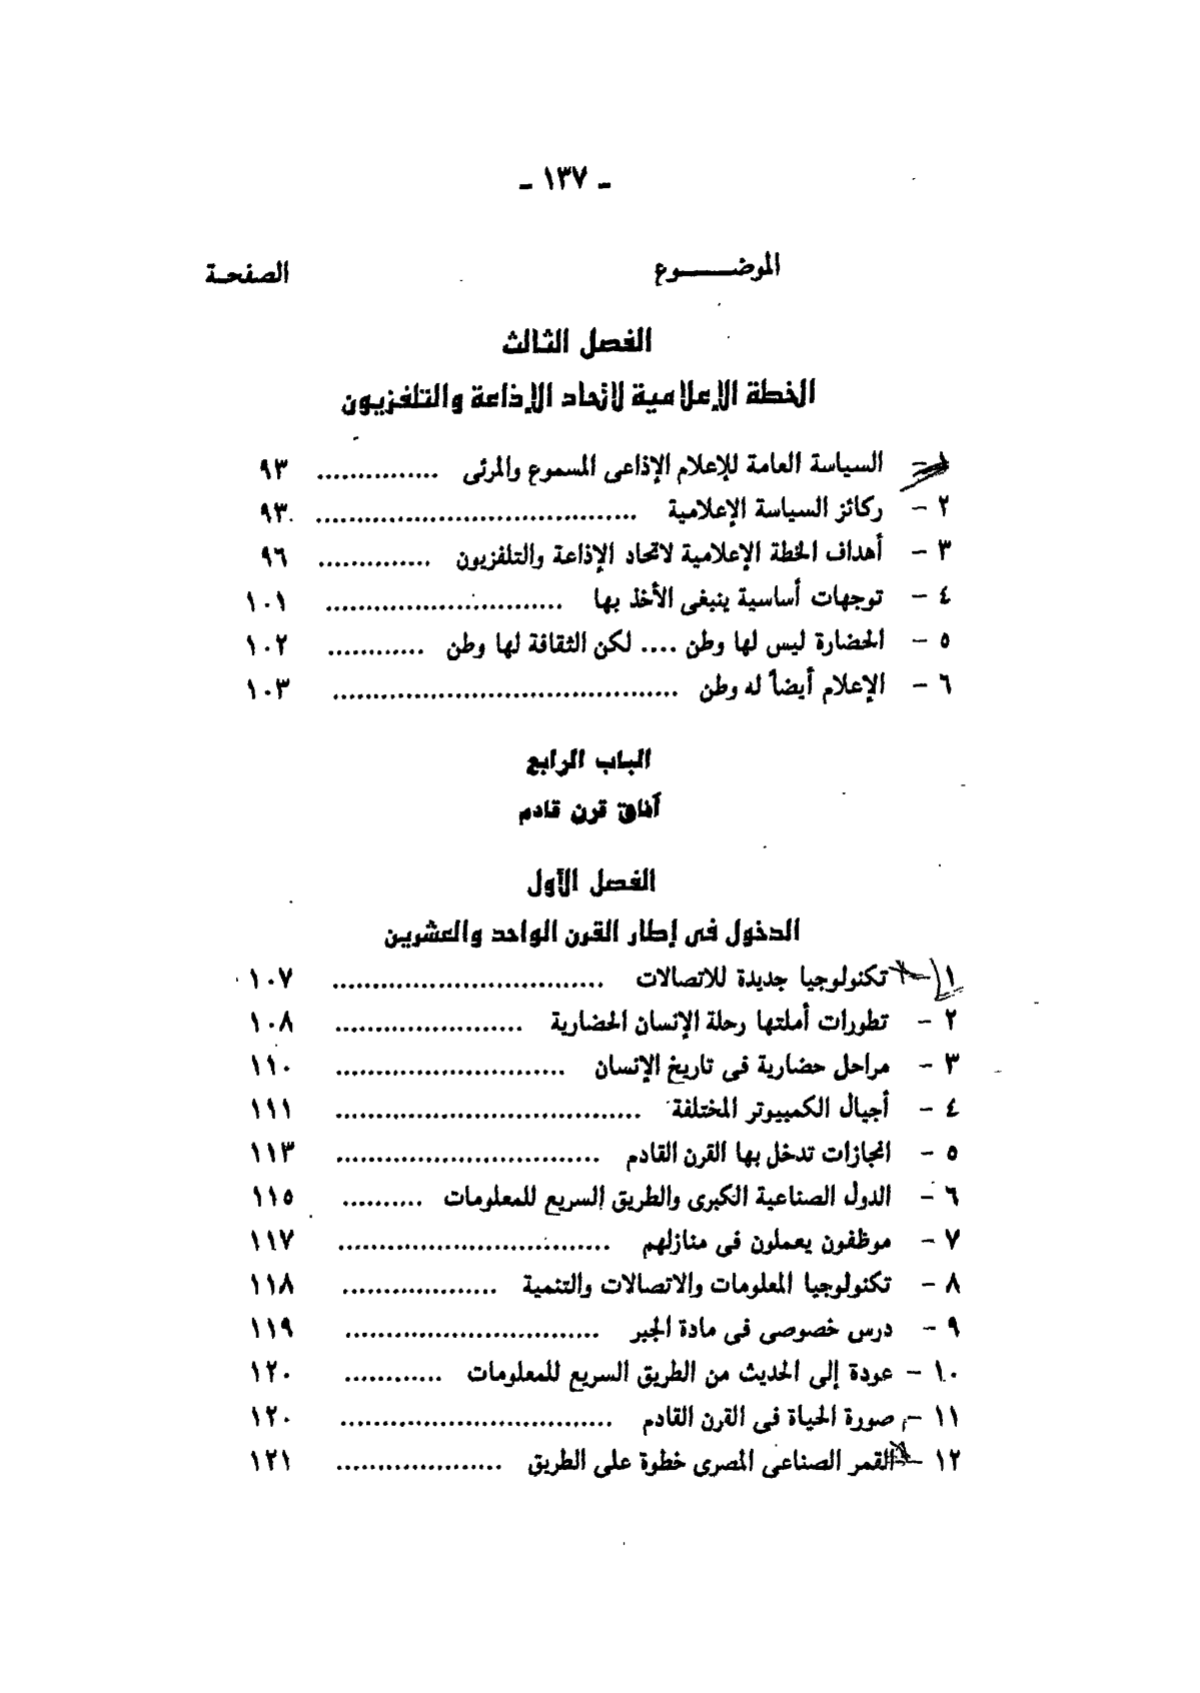 - ١٣٧ -
الموضـــــوع الصفحـة
الفصل الثالث
الخطة الإعلامية لاتحاد الإذاعة والتلفزيون
١ - السياسة العامة للإعلام الإذاعى المسموع والمرئى ............... ٩٣
٢ - ركائز السياسة الإعلامية ....................................... ٩٣
٣ - أهداف الخطة الإعلامية لاتحاد الإذاعة والتلفزيون .............. ٩٦
٤ - توجهات أساسية ينبغى الأخذ بها ............................. ١٠١
٥ - الحضارة ليس لها وطن .... لكن الثقافة لها وطن ............ ١٠٢
٦ - الإعلام أيضاً له وطن .......................................... ١٠٣
الباب الرابع
آفاق قرن قادم
الفصل الأول
الدخول فى إطار القرن الواحد والعشرين
١ - تكنولوجيا جديدة للاتصالات ................................. ١٠٧
٢ - تطورات أملتها رحلة الإنسان الحضارية ....................... ١٠٨
٣ - مراحل حضارية فى تاريخ الإنسان ............................ ١١٠
٤ - أجيال الكمبيوتر المختلفة ..................................... ١١١
٥ - انجازات تدخل بها القرن القادم ................................ ١١٣
٦ - الدول الصناعية الكبرى والطريق السريع للمعلومات .......... ١١٥
٧ - موظفون يعملون فى منازلهم ................................. ١١٧
٨ - تكنولوجيا المعلومات والاتصالات والتنمية ................... ١١٨
٩ - درس خصوصى فى مادة الجبر ............................... ١١٩
١٠ - عودة إلى الحديث من الطريق السريع للمعلومات ............ ١٢٠
١١ - صورة الحياة فى القرن القادم ................................. ١٢٠
١٢ - القمر الصناعى المصرى خطوة على الطريق .................... ١٢١